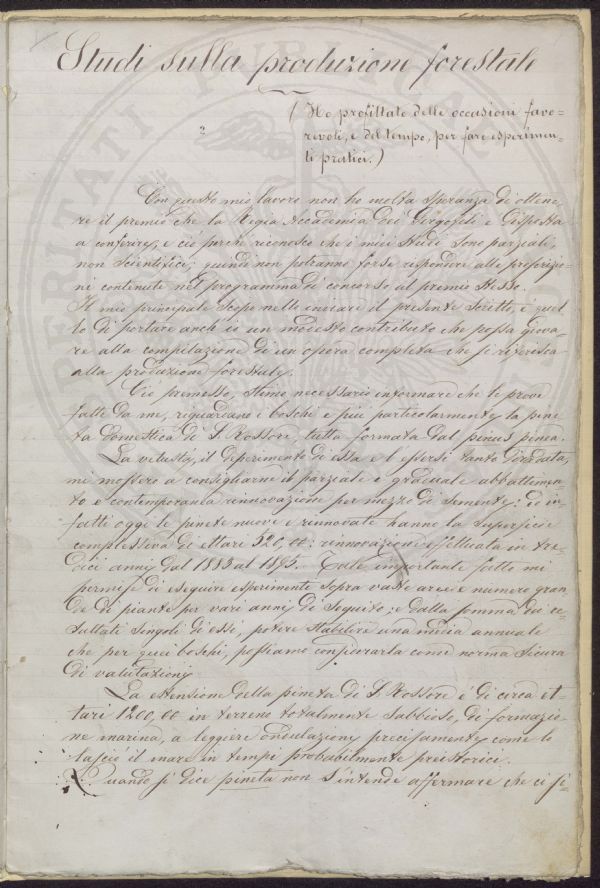 Studi sulla produzione forestale
(Ho profittato delle occasioni favo-
revoli, e del tempo, per fare esperimen-
ti pratici.)
Con questo mio lavoro non ho molta speranza di ottene-
re il premio che la Regia Accademia dei Georgofili è disposta
a conferire, e ciò perchè riconosco che i miei studi sono parziali,
non scientifici; quindi non potranno forse rispondere alle prescrizio-
ni contenute nel programma di concorso al premio stesso.
Il mio principale scopo nello iniziare il presente scritto, è quel-
lo di portare anch'io un modesto contributo che possa giova-
re alla compilazione di un'opera completa che si riferisca
alla produzione forestale.
Ciò premesso, stimo necessario informare che le prove
fatte da me, riguardano i boschi e più particolarmente la pine-
ta domestica di S. Rossore, tutta formata dal pinus pinea.
La vetustà, il deperimento di essa e l'essersi tanto diradata,
mi mossero a consigliarne il parziale e graduale abbattimen-
to e contemporanea rinnovazione per mezzo di semente: di
fatti oggi le pinete nuove e rinnovate hanno la superficie
complessiva di ettari 520,00: rinnovazione effettuata in tre-
dici anni dal 1883 al 1895. Tale importante fatto mi
permise di eseguire esperimenti sopra vaste aree e numero gran-
de di piante per vari anni di seguito; e dalla somma dei re-
sultati singoli di essi, potere stabilire una media annuale
che per quei boschi, possiamo considerarla come norma sicura
di valutazione.
La estensione della pineta di S. Rossore è di circa et-
tari 1200,00 in terreno totalmente sabbioso, di formazio-
ne marina, a leggiere ondulazioni precisamente come lo
lasciò il mare in tempi probabilmente preistorici.
Quando si dice pineta non s'intende affermare che ci si-